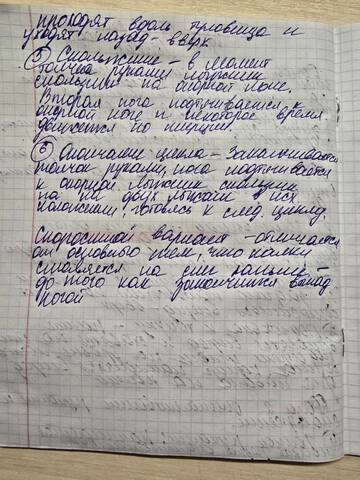 проходят вдоль туловища и
уходят назад-вверх
⑤ Скольжение - в момент
толчка руками лыжник
скользит на опорной ноге.
Вторая нога подтягивается к
опорной ноге и некоторое время
движется по инерции.
⑥ Окончание цикла - Заканчивается
толчок руками, нога подтягивается
к опорной. Лыжник скользит
на двух лыжах в исх.
положении, готовясь к след. циклу.
Скоростной вариант - отличается
от основного тем, что палки
ставятся на снег раньше -
до того как закончится выпад
ногой